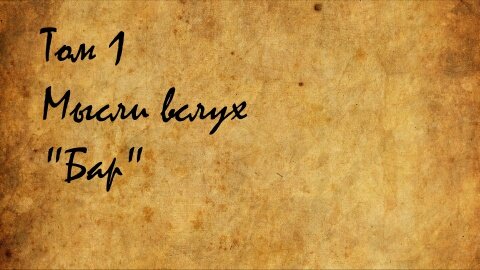 Том 1
Мысли вслух
"Бар"